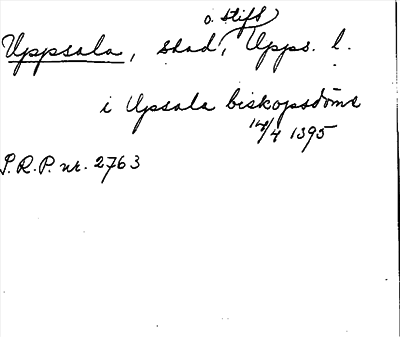 o. stift
Uppsala, stad, Upps. l.
i Upsala biskopsdöme
14/4 1395
S.R.P. nr. 2763